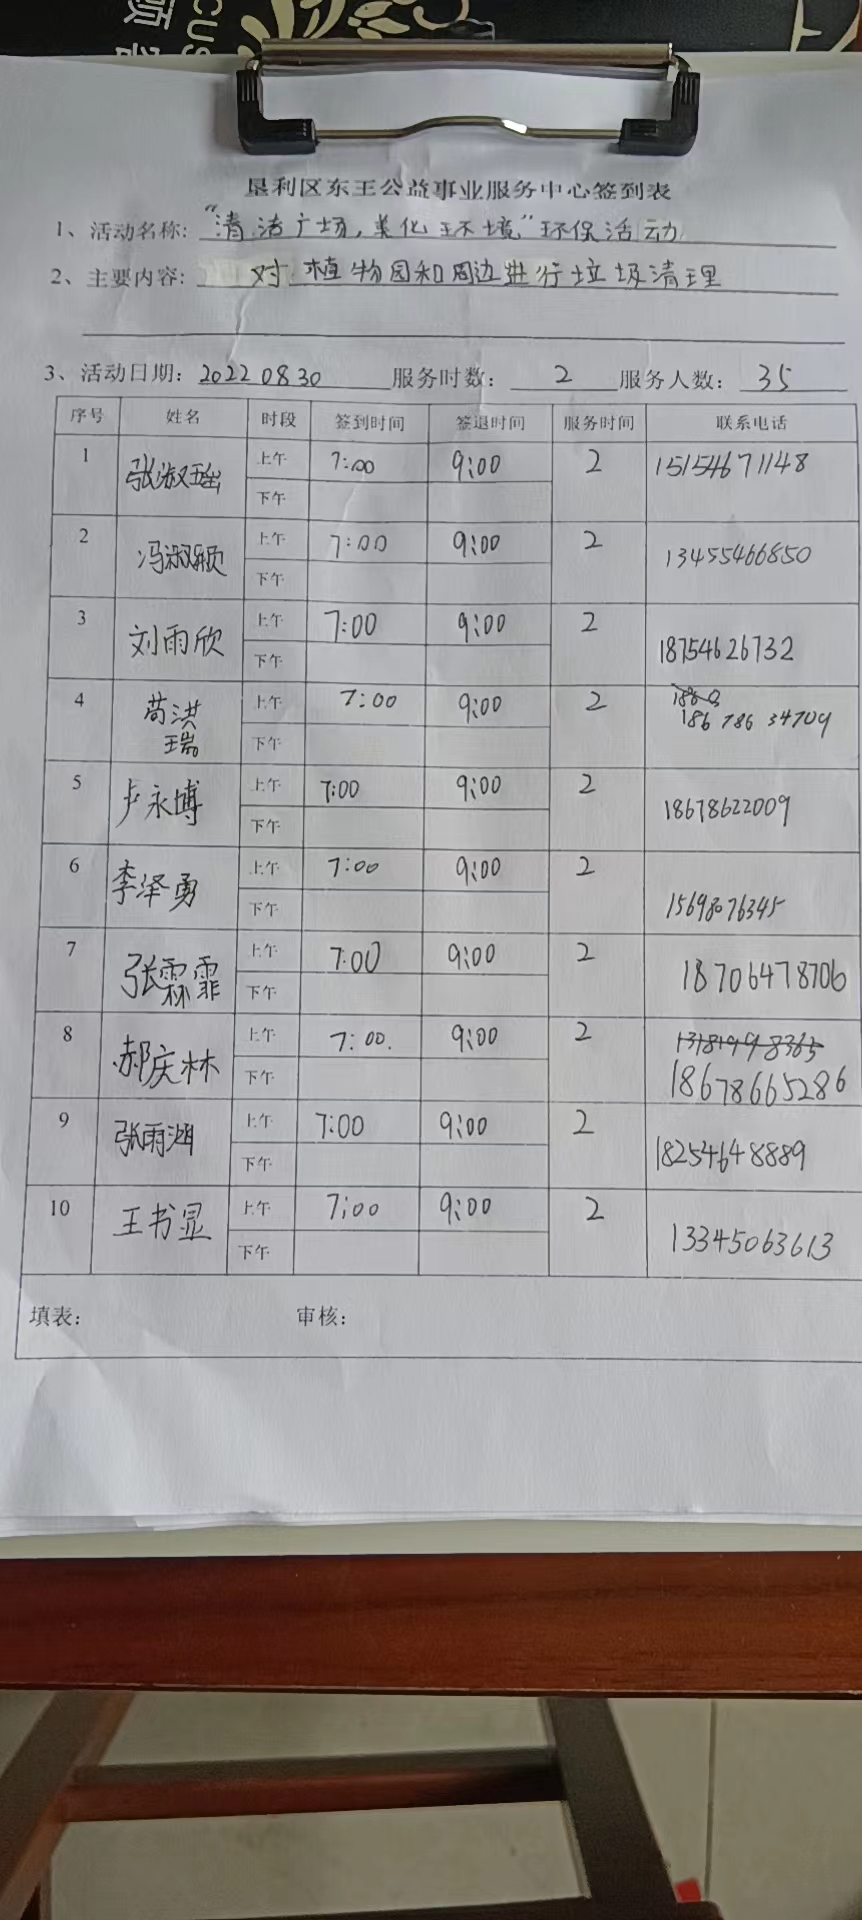 CUS
垦利区东王公益事业服务中心签到表
1、活动名称: "清洁广场,美化环境"环保活动
2、主要内容: 对植物园和周边进行垃圾清理
3、活动日期: 2022 08 30 服务时数: 2 服务人数: 35
序号 姓名 时段 签到时间 签退时间 服务时间 联系电话
1 张淑瑶 上午 7:00 9:00 2 15154671148
下午
2 冯淑颖 上午 7:00 9:00 2 13455466850
下午
3 刘雨欣 上午 7:00 9:00 2 18754626732
下午
4 苟洪瑞 上午 7:00 9:00 2 186 786 34709
下午
5 卢永博 上午 7:00 9:00 2 18678622009
下午
6 李泽勇 上午 7:00 9:00 2 15698076345
下午
7 张霖霏 上午 7:00 9:00 2 18706478706
下午
8 郝庆林 上午 7:00. 9:00 2 13181998365
18678665286
下午
9 张雨湘 上午 7:00 9:00 2 18254648889
下午
10 王书显 上午 7:00 9:00 2 13345063613
下午
填表: 审核: